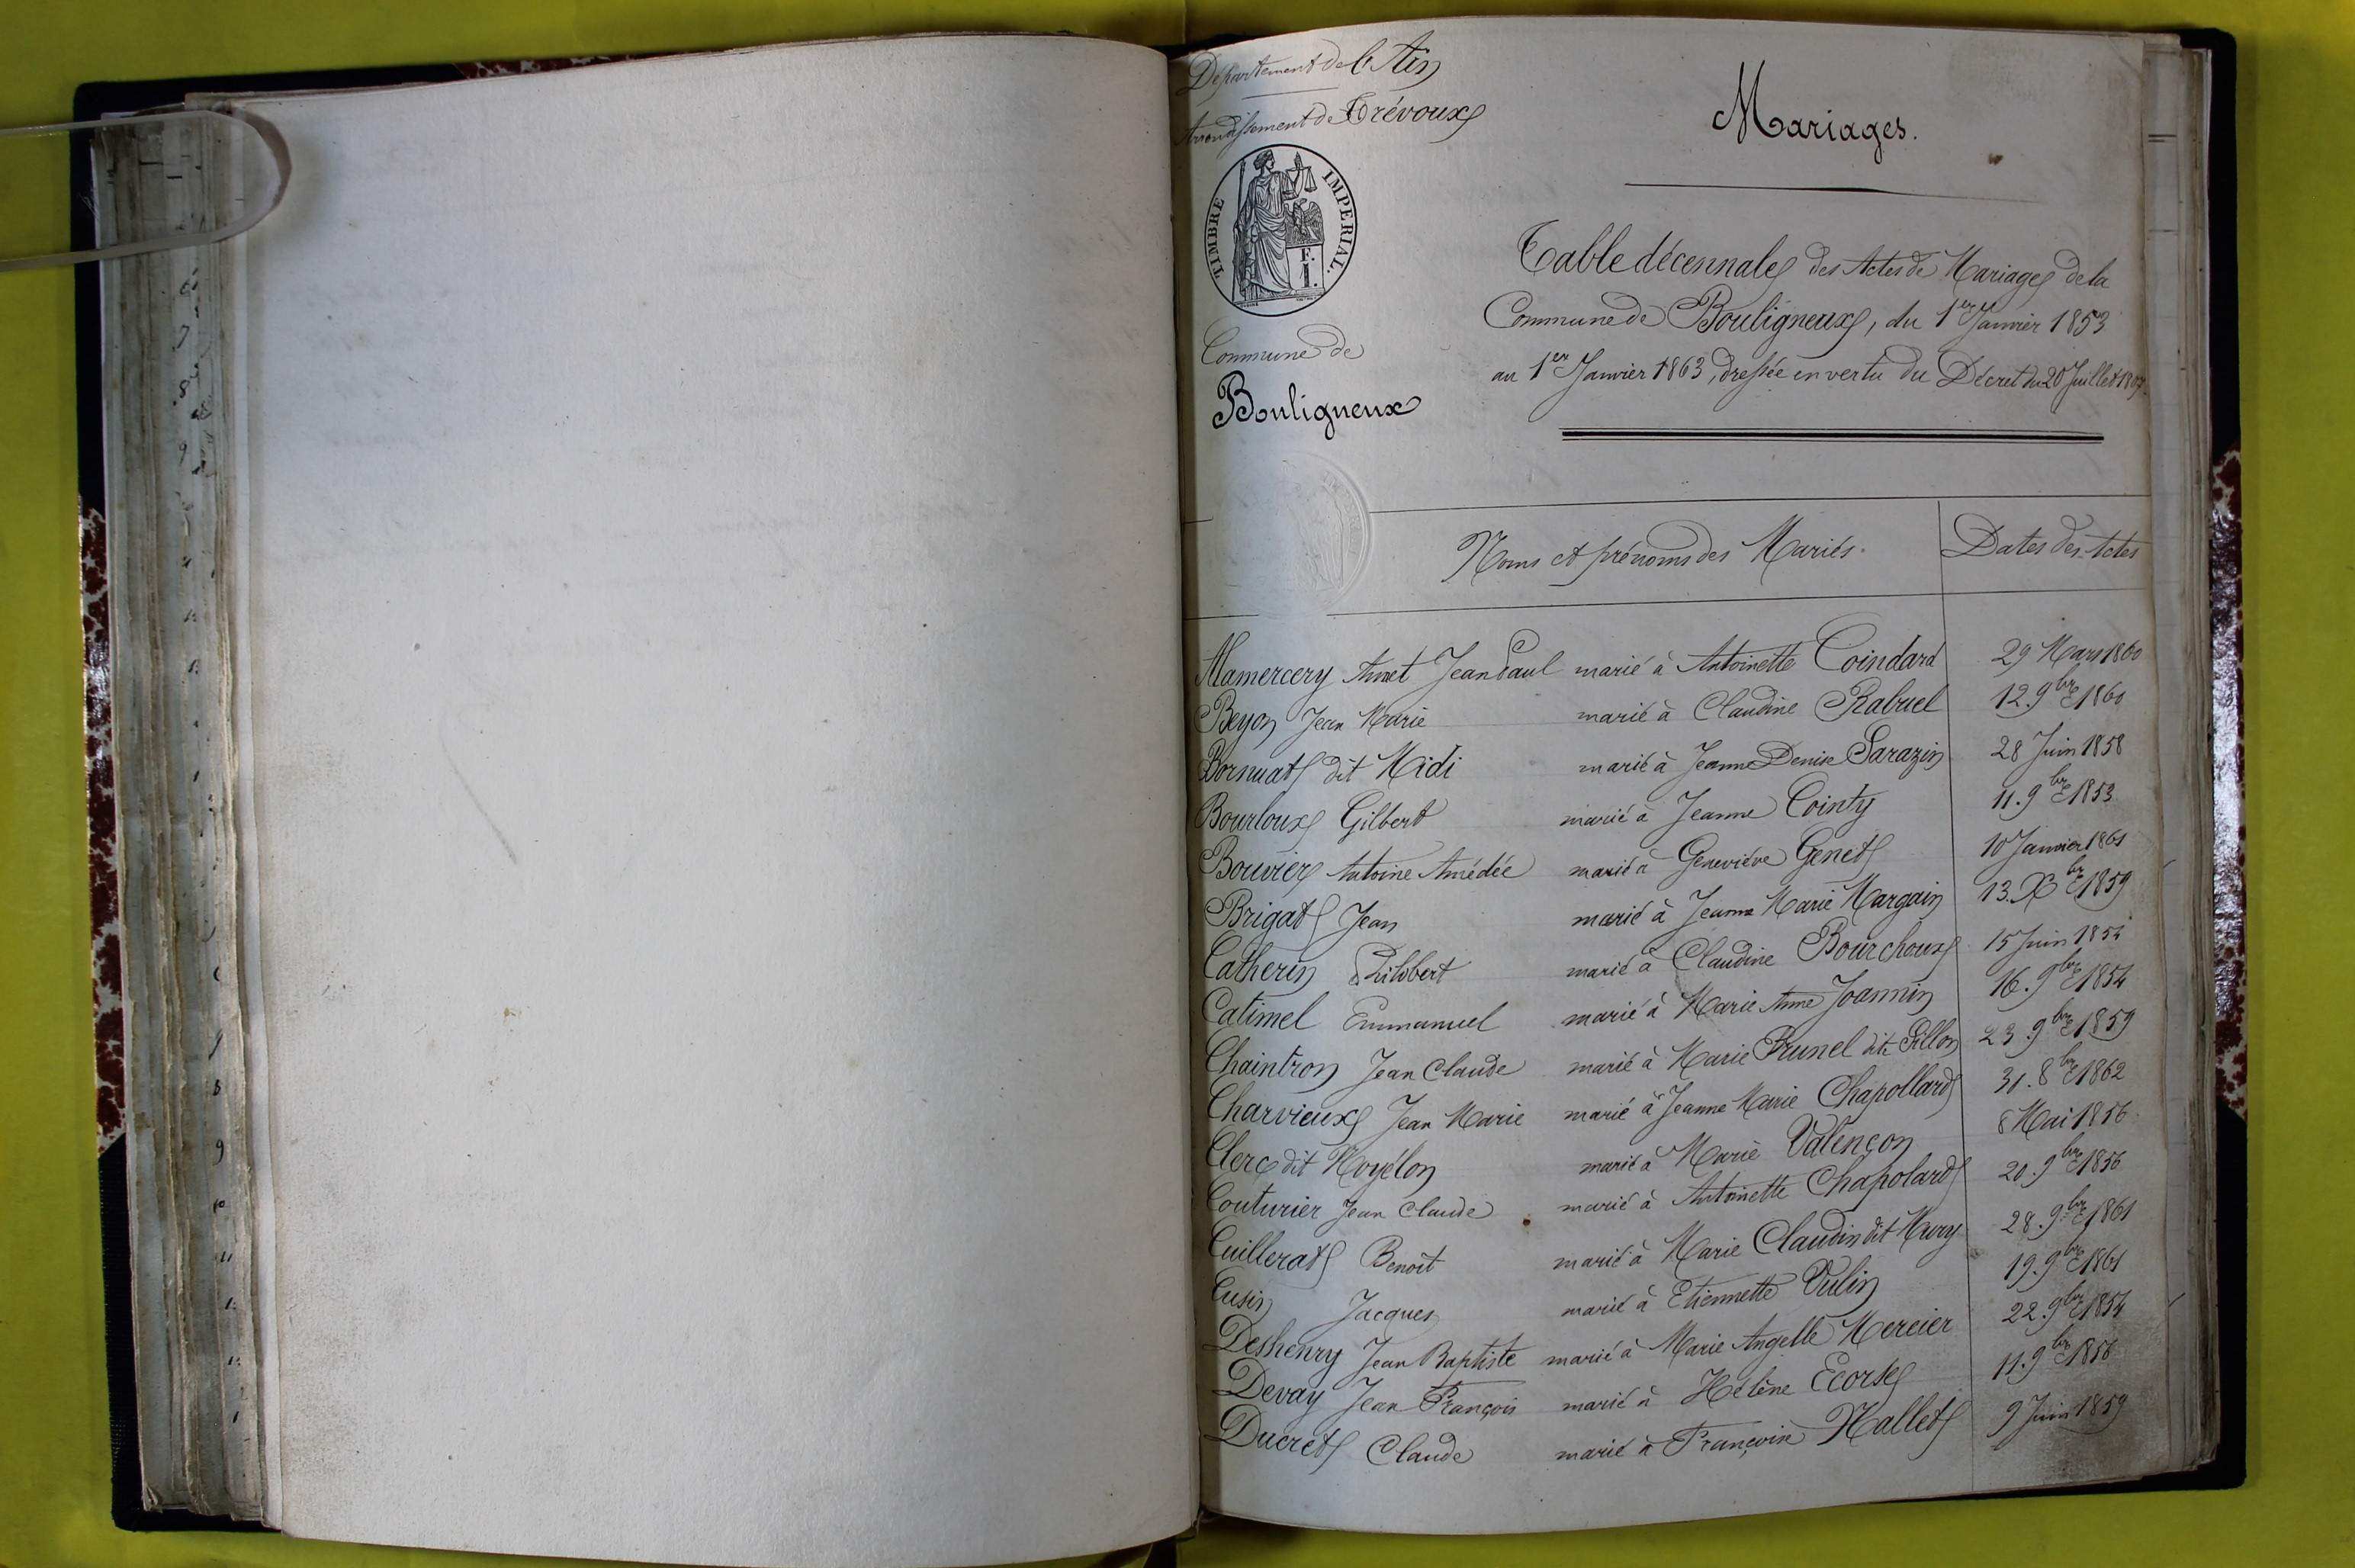 Département de l'Ain
Arrondissement de Trévoux
TIMBRE IMPERIAL.
F.
1.
Commune de
Bouligneux
Mariages.
Table décennale des Actes de Mariage de la
Commune de Bouligneux, du 1er Janvier 1853
au 1er Janvier 1863, dressée en vertu du Décret du 20 Juillet 1807.
Noms et prénoms des Mariés. Dates des Actes
Alamercery Amet Jean Paul marié à Antoinette Coindard 29 Mars 1860
Beyon Jean Marie marié à Claudine Rabuel 12. 9bre 1860
Bornuat dit Midi marié à Jeanne Denise Sarazin 28 Juin 1858
Bourloux Gilbert marié à Jeanne Cointy 11. 9bre 1853
Bouvier Antoine Amédée marié à Geneviève Genet 10 Janvier 1861
Brigat Jean marié à Jeanne Marie Margain 13. Xbre 1859
Catherin Philibert marié à Claudine Bourchoux 15 Juin 1854
Catimel Emmanuel marié à Marie Anne Joannin 16. 9bre 1854
Chaintron Jean Claude marié à Marie Prunel dite Pillon 23. 9bre 1859
Charvieux Jean Marie marié à Jeanne Marie Chapollard 31. 8bre 1862
Clerc dit Moyélon marié à Marie Valençon 8 Mai 1856
Couturier Jean Claude marié à Antoinette Chapolard 20. 9bre 1856
Cuillerat Benoît marié à Marie Claudin dit Mury 28. 9bre 1861
Cusin Jacques marié à Etiennette Vulin 19. 9bre 1861
Deshenry Jean Baptiste marié à Marie Angelle Mercier 22. 9bre 1854
Devay Jean François marié à Hélène Ecorse 11. 9bre 1858
Ducret Claude marié à Françoise Nallet 9 Juin 1859